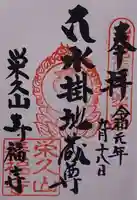 奉拝
令和元年
九月十八日
水掛地蔵尊
栄久山
寿福寺
栄久山